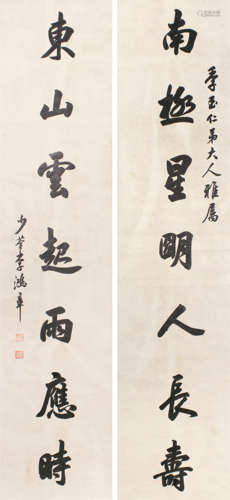 季玉仁弟大人雅屬
南極星明人長壽
東山雲起雨應時
少荃李鴻章